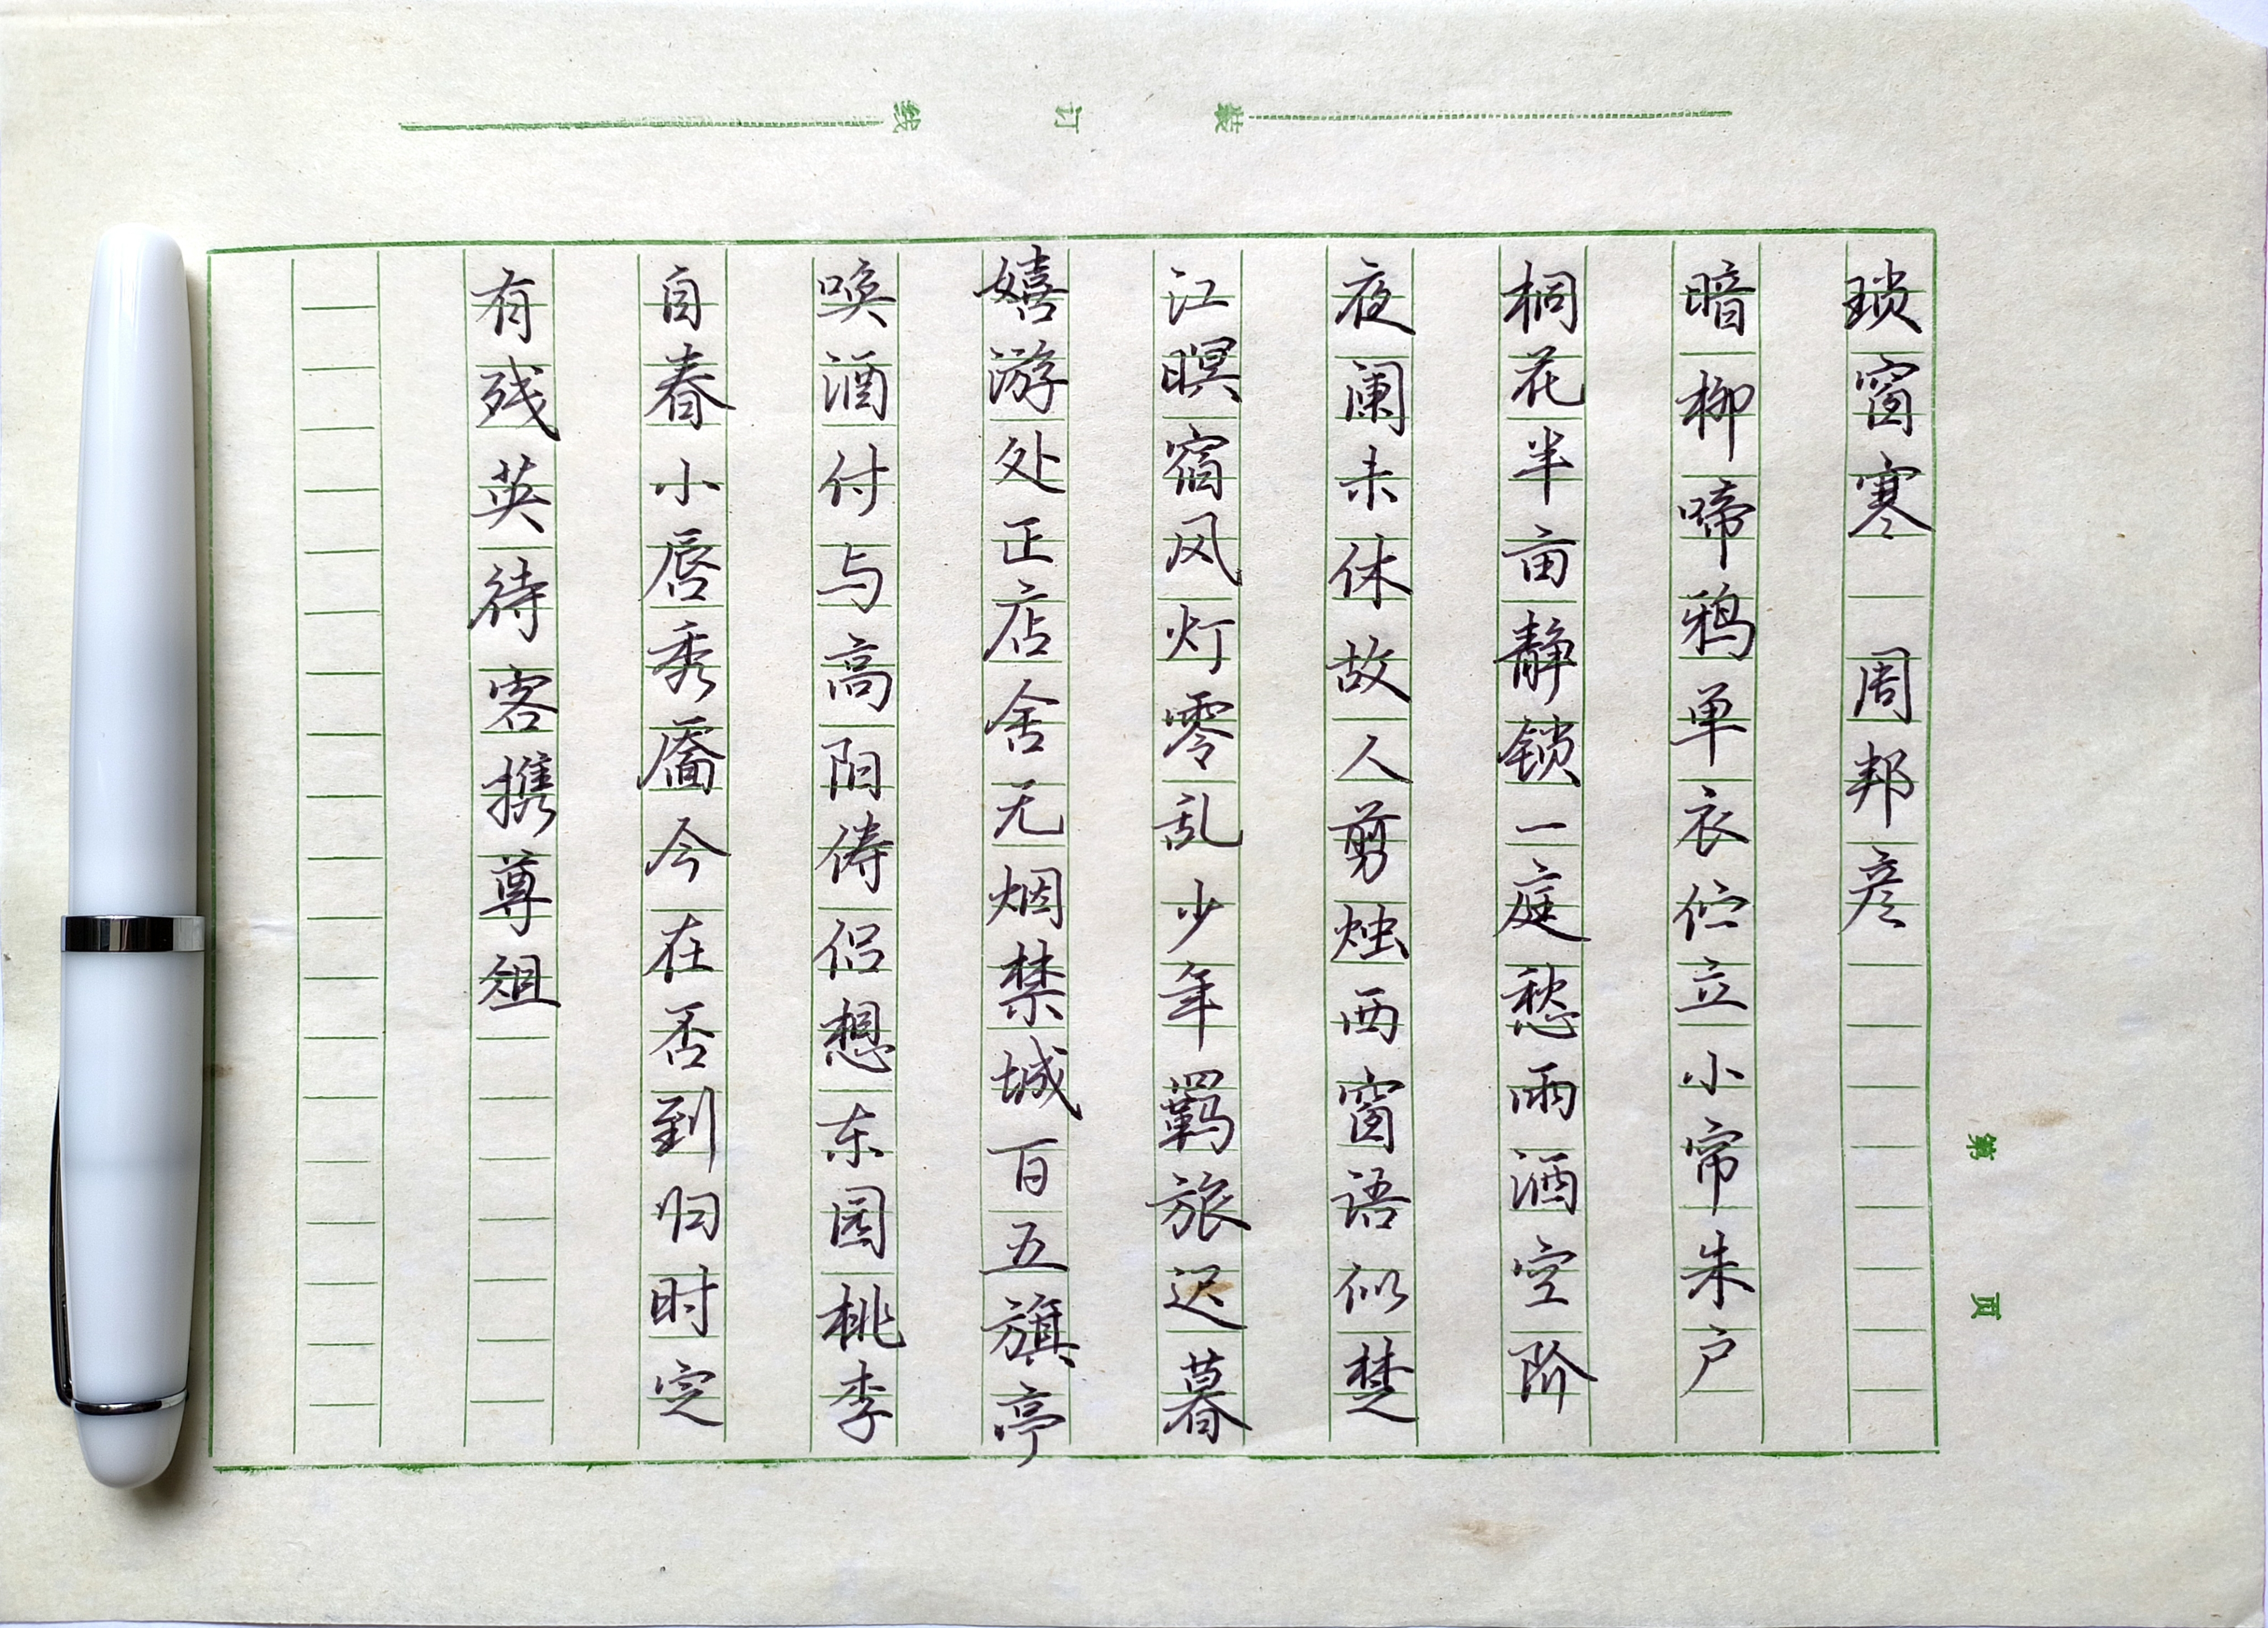 装订线
琐窗寒 周邦彦
暗柳啼鸦单衣伫立小帘朱户
桐花半亩静锁一庭愁雨酒空阶
夜阑未休故人剪烛西窗语似楚
江暝宿风灯零乱少年羁旅迟暮
嬉游处正店舍无烟禁城百五旗亭
唤酒付与高阳俦侣想东园桃李
自春小唇秀靥今在否到归时定
有残英待客携尊俎
第 页